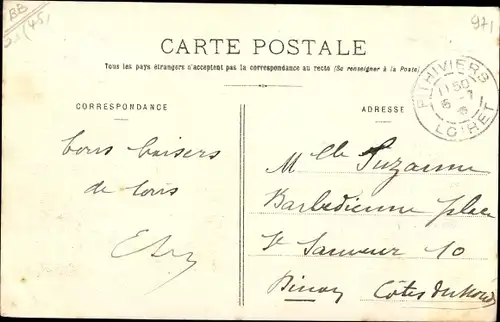 BB
(45)
971
CARTE POSTALE
Tous les pays étrangers n'acceptent pas la correspondance au recto (Se renseigner à la Poste)
CORRESPONDANCE
ADRESSE
PITHIVIERS
11 50
LOIRET
bons baisers
de tous
Mlle Suzanne
Barbedienne place
St Sauveur 10
Dinan Côtes du Nord